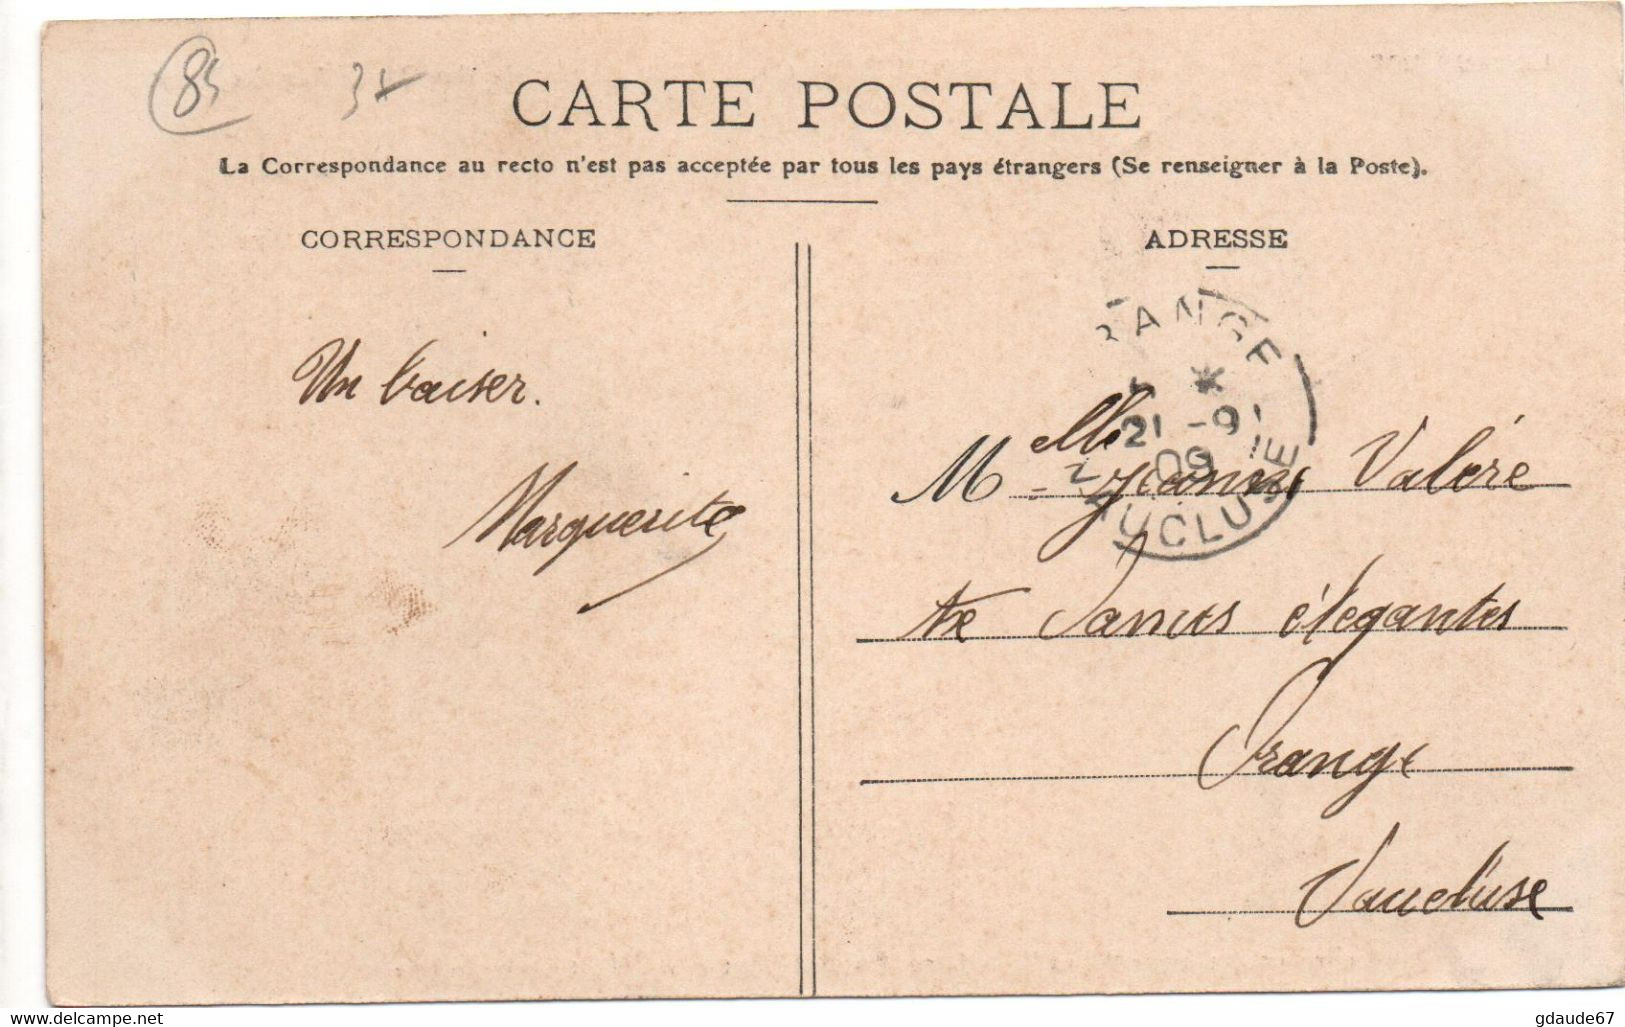 85
CARTE POSTALE
La Correspondance au recto n'est pas acceptée par tous les pays étrangers (Se renseigner à la Poste).
CORRESPONDANCE
ADRESSE
Un baiser.
Marguerite
RANGE
*
21 -9
09
VAUCLUSE
Melle Jeanne Valère
Dames élégantes
Orange
Vaucluse
www.delcampe.net
gdaude67